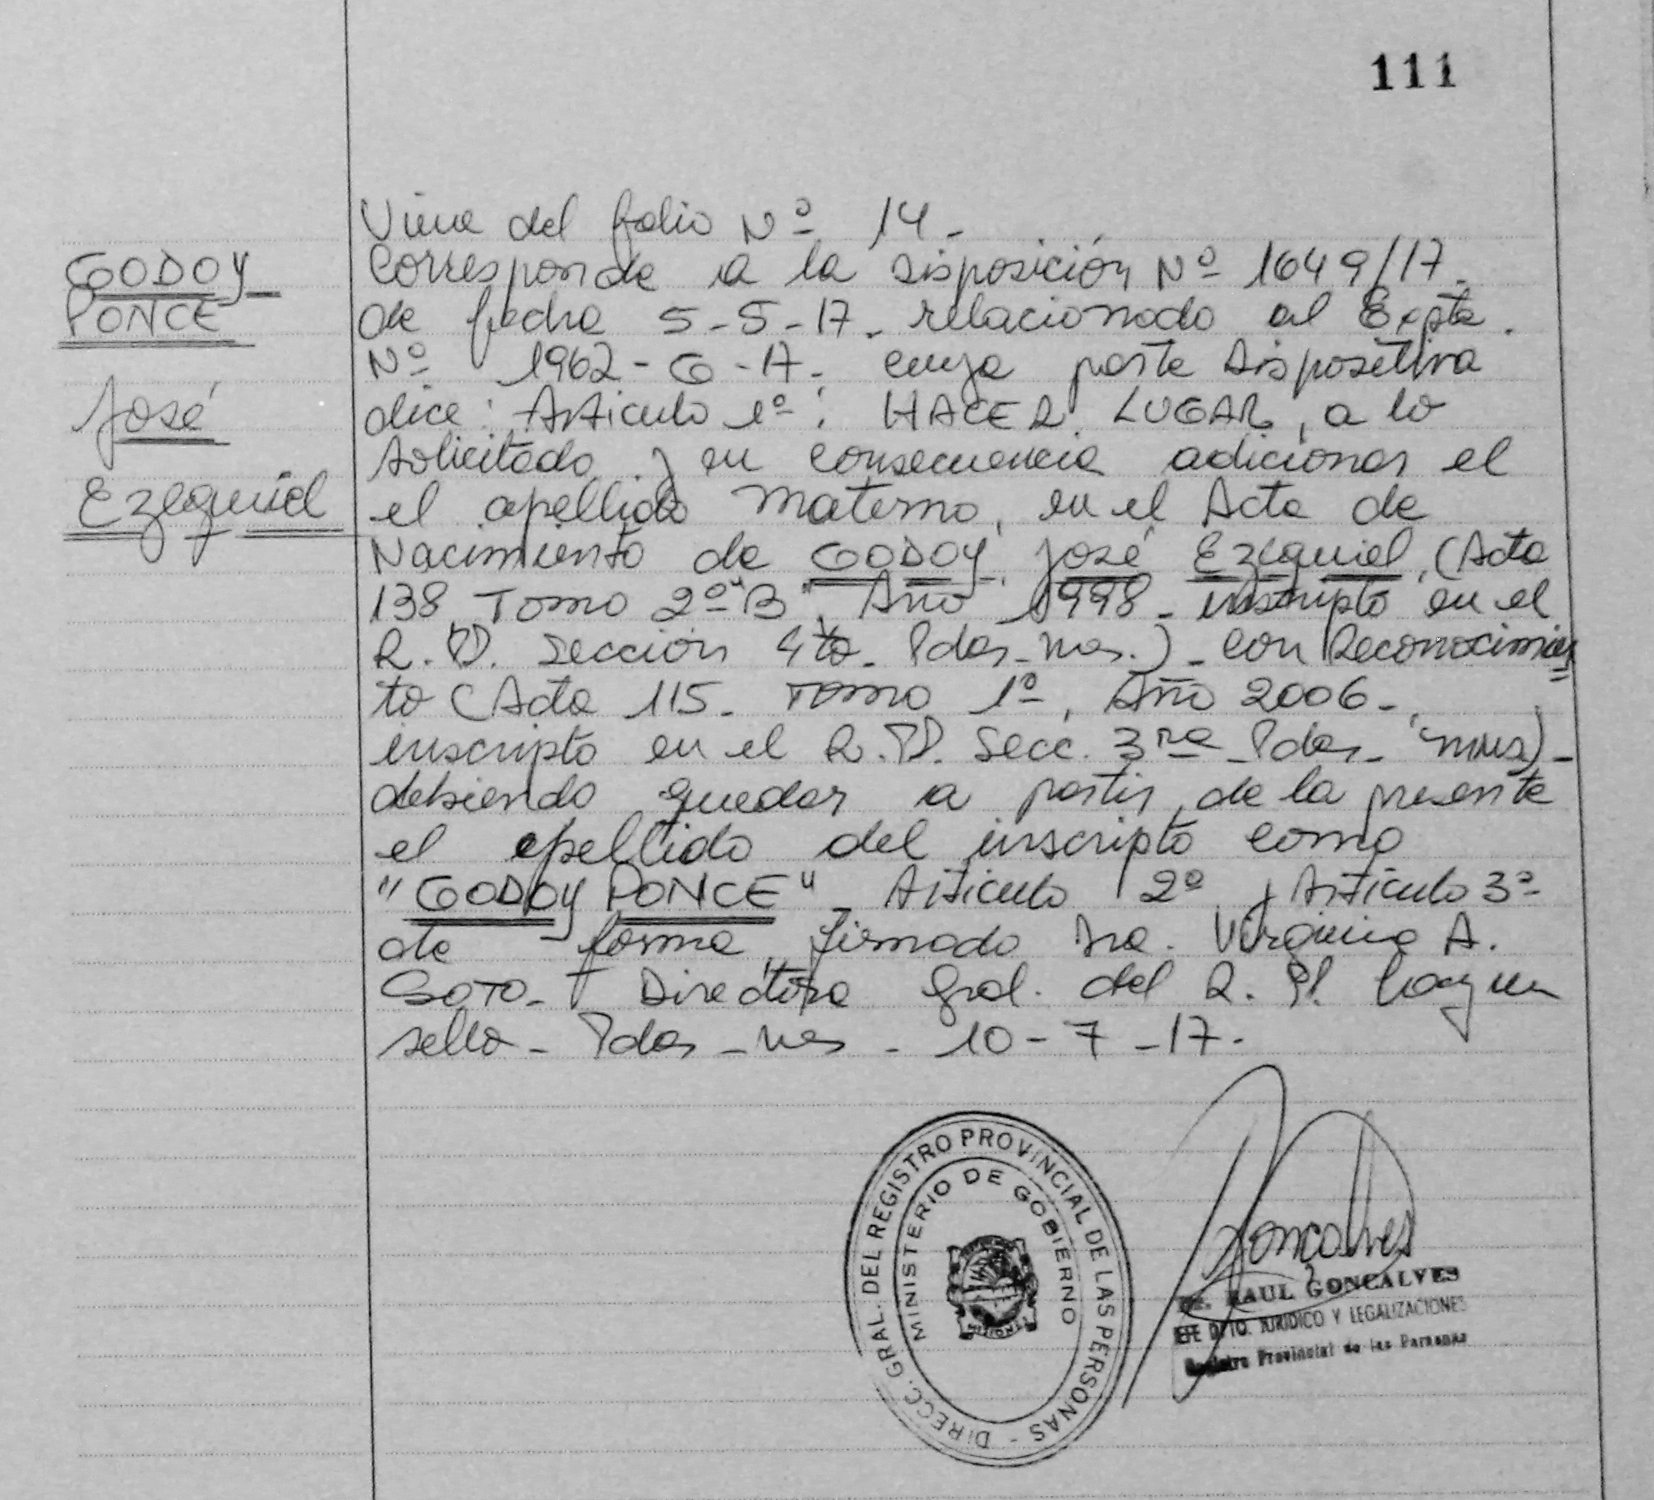 111
GODOY
PONCE
José
Ezequiel
Viene del folio Nº 14-
Corresponde a la Disposición Nº 1649/17-
de fecha 5-5-17- relacionado al Expte.
Nº 1962-G-17- cuya parte Dispositiva
dice: Articulo 1º: HACER LUGAR, a lo
solicitado y en consecuencia adicionar el
el apellido Materno, en el Acta de
Nacimiento de GODOY, José Ezequiel, (Acta
138 Tomo 2º "B" Año 1998- inscripto en el
R.P. Sección 4ta- Pdas-Mnes.)- con Reconocimien
to (Acta 115- Tomo 1º, Año 2006-
inscripto en el R.P. Secc. 3ra- Pdas- Mnes)-
debiendo quedar a partir de la presente
el apellido del inscripto como
"GODOY PONCE" Articulo 2º y Artículo 3º
de forma firmado Dra. Virginia A.
SOTO- Directora Gral. del R.P. Hay un
sello- Pdas-Mnes- 10-7-17.
DIRECC. GRAL. DEL REGISTRO PROVINCIAL DE LAS PERSONAS -
MINISTERIO DE GOBIERNO
MISIONES
Goncalves
Dr. RAUL GONCALVES
JEFE DPTO. JURIDICO Y LEGALIZACIONES
Registro Provincial de las Personas